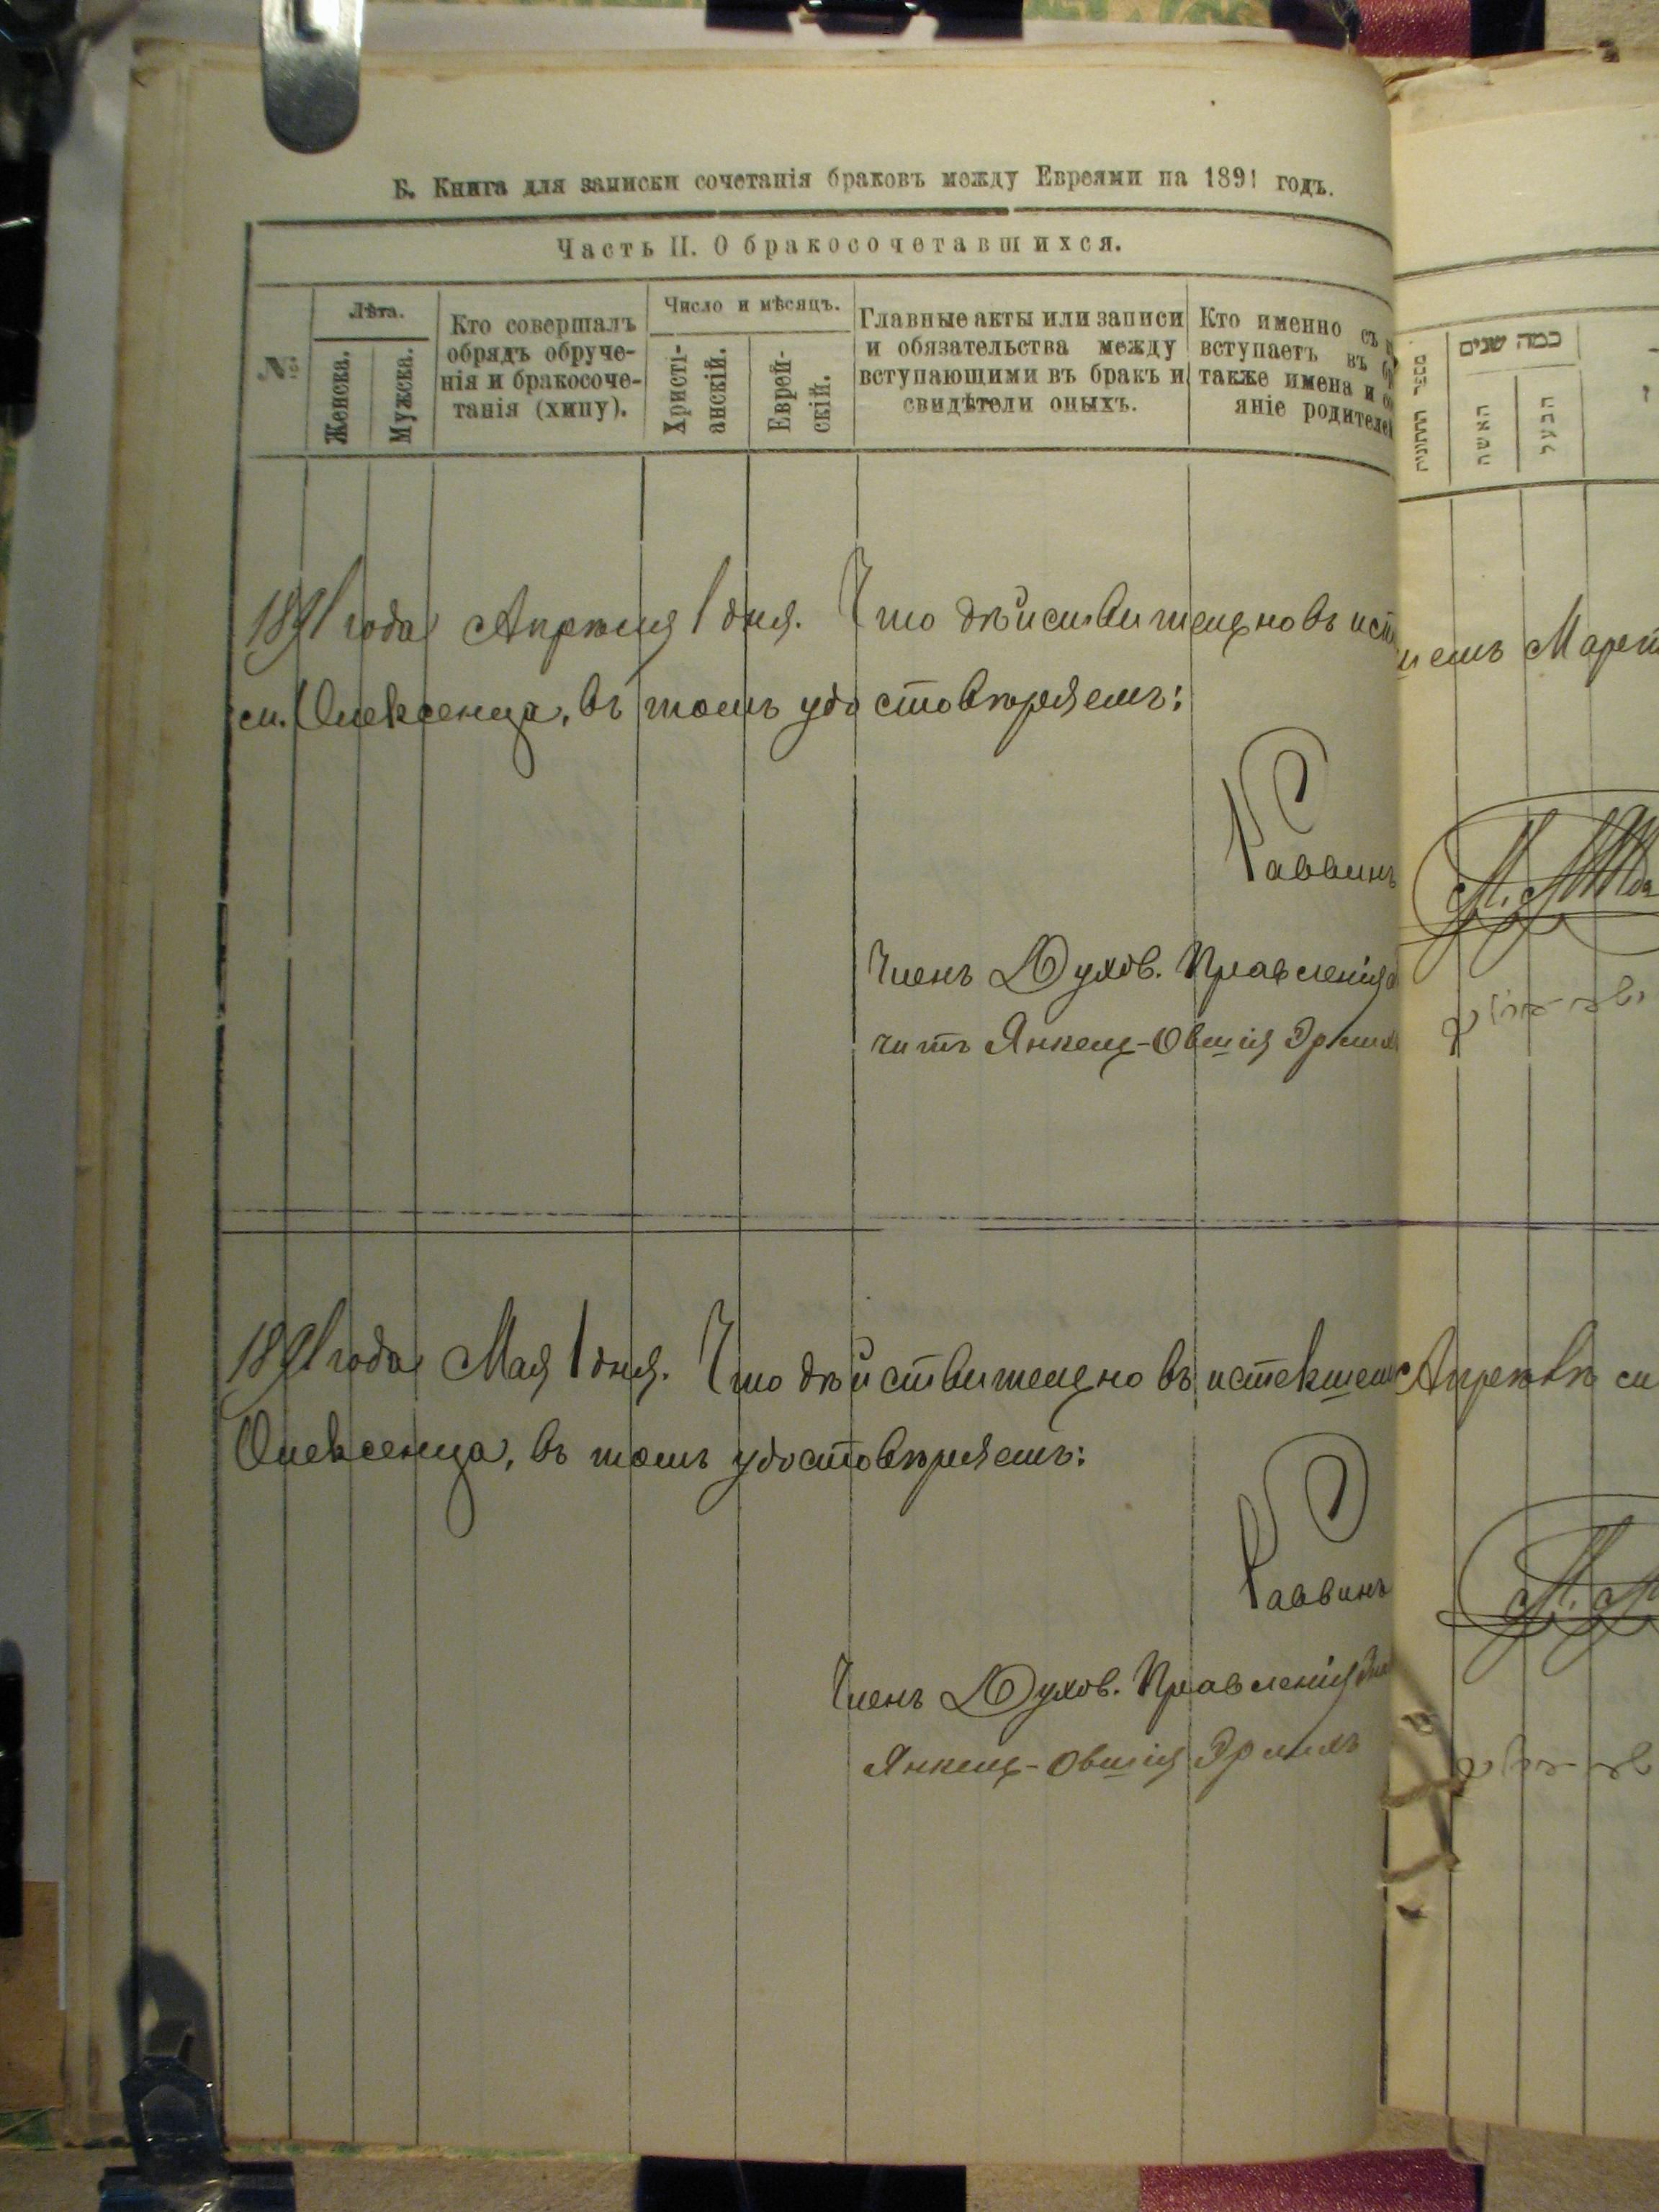 Б. Книга для записки сочетанія браковъ между Евреями на 1891 годъ.
Часть II. О бракосочетавшихся.
№
Лѣта.
Женска.
Мужска.
Кто совершалъ
обрядъ обруче-
нія и бракосоче-
танія (хипу).
Число и мѣсяцъ.
Христі-
анскій.
Еврей-
скій.
Главные акты или записи
и обязательства между
вступающими въ бракъ и
свидѣтели оныхъ.
Кто именно съ
вступаетъ въ
также имена и
яніе родителей
כמה שנים
האשה
הבעל
1891 года Апрѣля 1 дня. Что дѣйствительно въ ист
шемъ Мартѣ
м. Олексенца, въ томъ удостовѣряемъ:
Раввинъ
Членъ Духов. Правленія
читъ Янкель-Овшія
1891 года Мая 1 дня. Что дѣйствительно въ истекшемъ Апрѣлѣ м
Олексенца, въ томъ удостовѣряемъ:
Раввинъ
Членъ Духов. Правленія
Янкель-Овшія